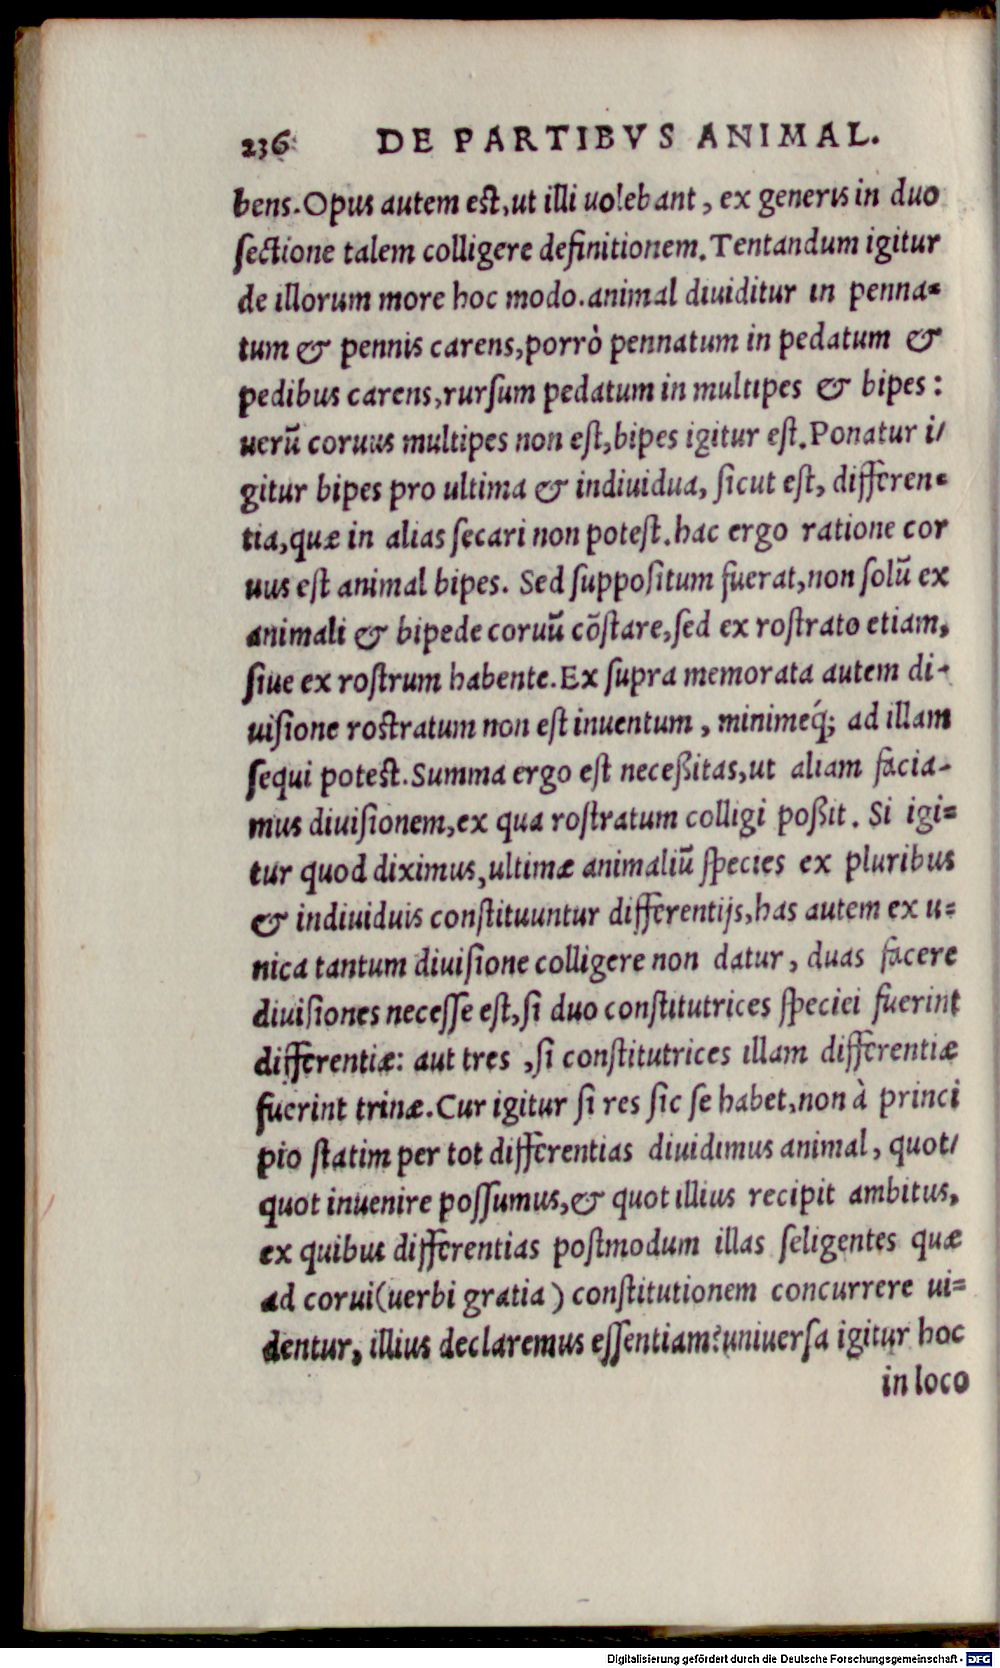 236 DE PARTIBVS ANIMAL.
bens. Opus autem est, ut illi uolebant, ex generis in duo
ſectione talem colligere definitionem. Tentandum igitur
de illorum more hoc modo. animal diuiditur in penna-
tum & pennis carens, porrò pennatum in pedatum &
pedibus carens, rurſum pedatum in multipes & bipes:
uerũ coruus multipes non eſt, bipes igitur eſt. Ponatur i/
gitur bipes pro ultima & indiuidua, ſicut eſt, differen-
tia, quæ in alias ſecari non poteſt. hac ergo ratione cor
uus eſt animal bipes. Sed ſuppoſitum fuerat, non ſolũ ex
animali & bipede coruũ cõſtare, ſed ex roſtrato etiam,
ſiue ex roſtrum habente. Ex ſupra memorata autem di-
uiſione rostratum non eſt inuentum, minimeq́; ad illam
ſequi potest. Summa ergo eſt neceßitas, ut aliam facia-
mus diuiſionem, ex qua roſtratum colligi poßit. Si igi=
tur quod diximus, ultimæ animaliũ ſpecies ex pluribus
& indiuiduis conſtituuntur differentijs, has autem ex u=
nica tantum diuiſione colligere non datur, duas facere
diuiſiones neceſſe eſt, ſi duo conſtitutrices ſpeciei fuerint
differentiæ: aut tres, ſi conſtitutrices illam differentiæ
fuerint trinæ. Cur igitur ſi res ſic ſe habet, non à princi
pio ſtatim per tot differentias diuidimus animal, quot/
quot inuenire poſſumus, & quot illius recipit ambitus,
ex quibus differentias poſtmodum illas ſeligentes quæ
ad corui (uerbi gratia) conſtitutionem concurrere ui=
dentur, illius declaremus eſſentiam? uniuerſa igitur hoc
in loco
Digitalisierung gefördert durch die Deutsche Forschungsgemeinschaft - DFG